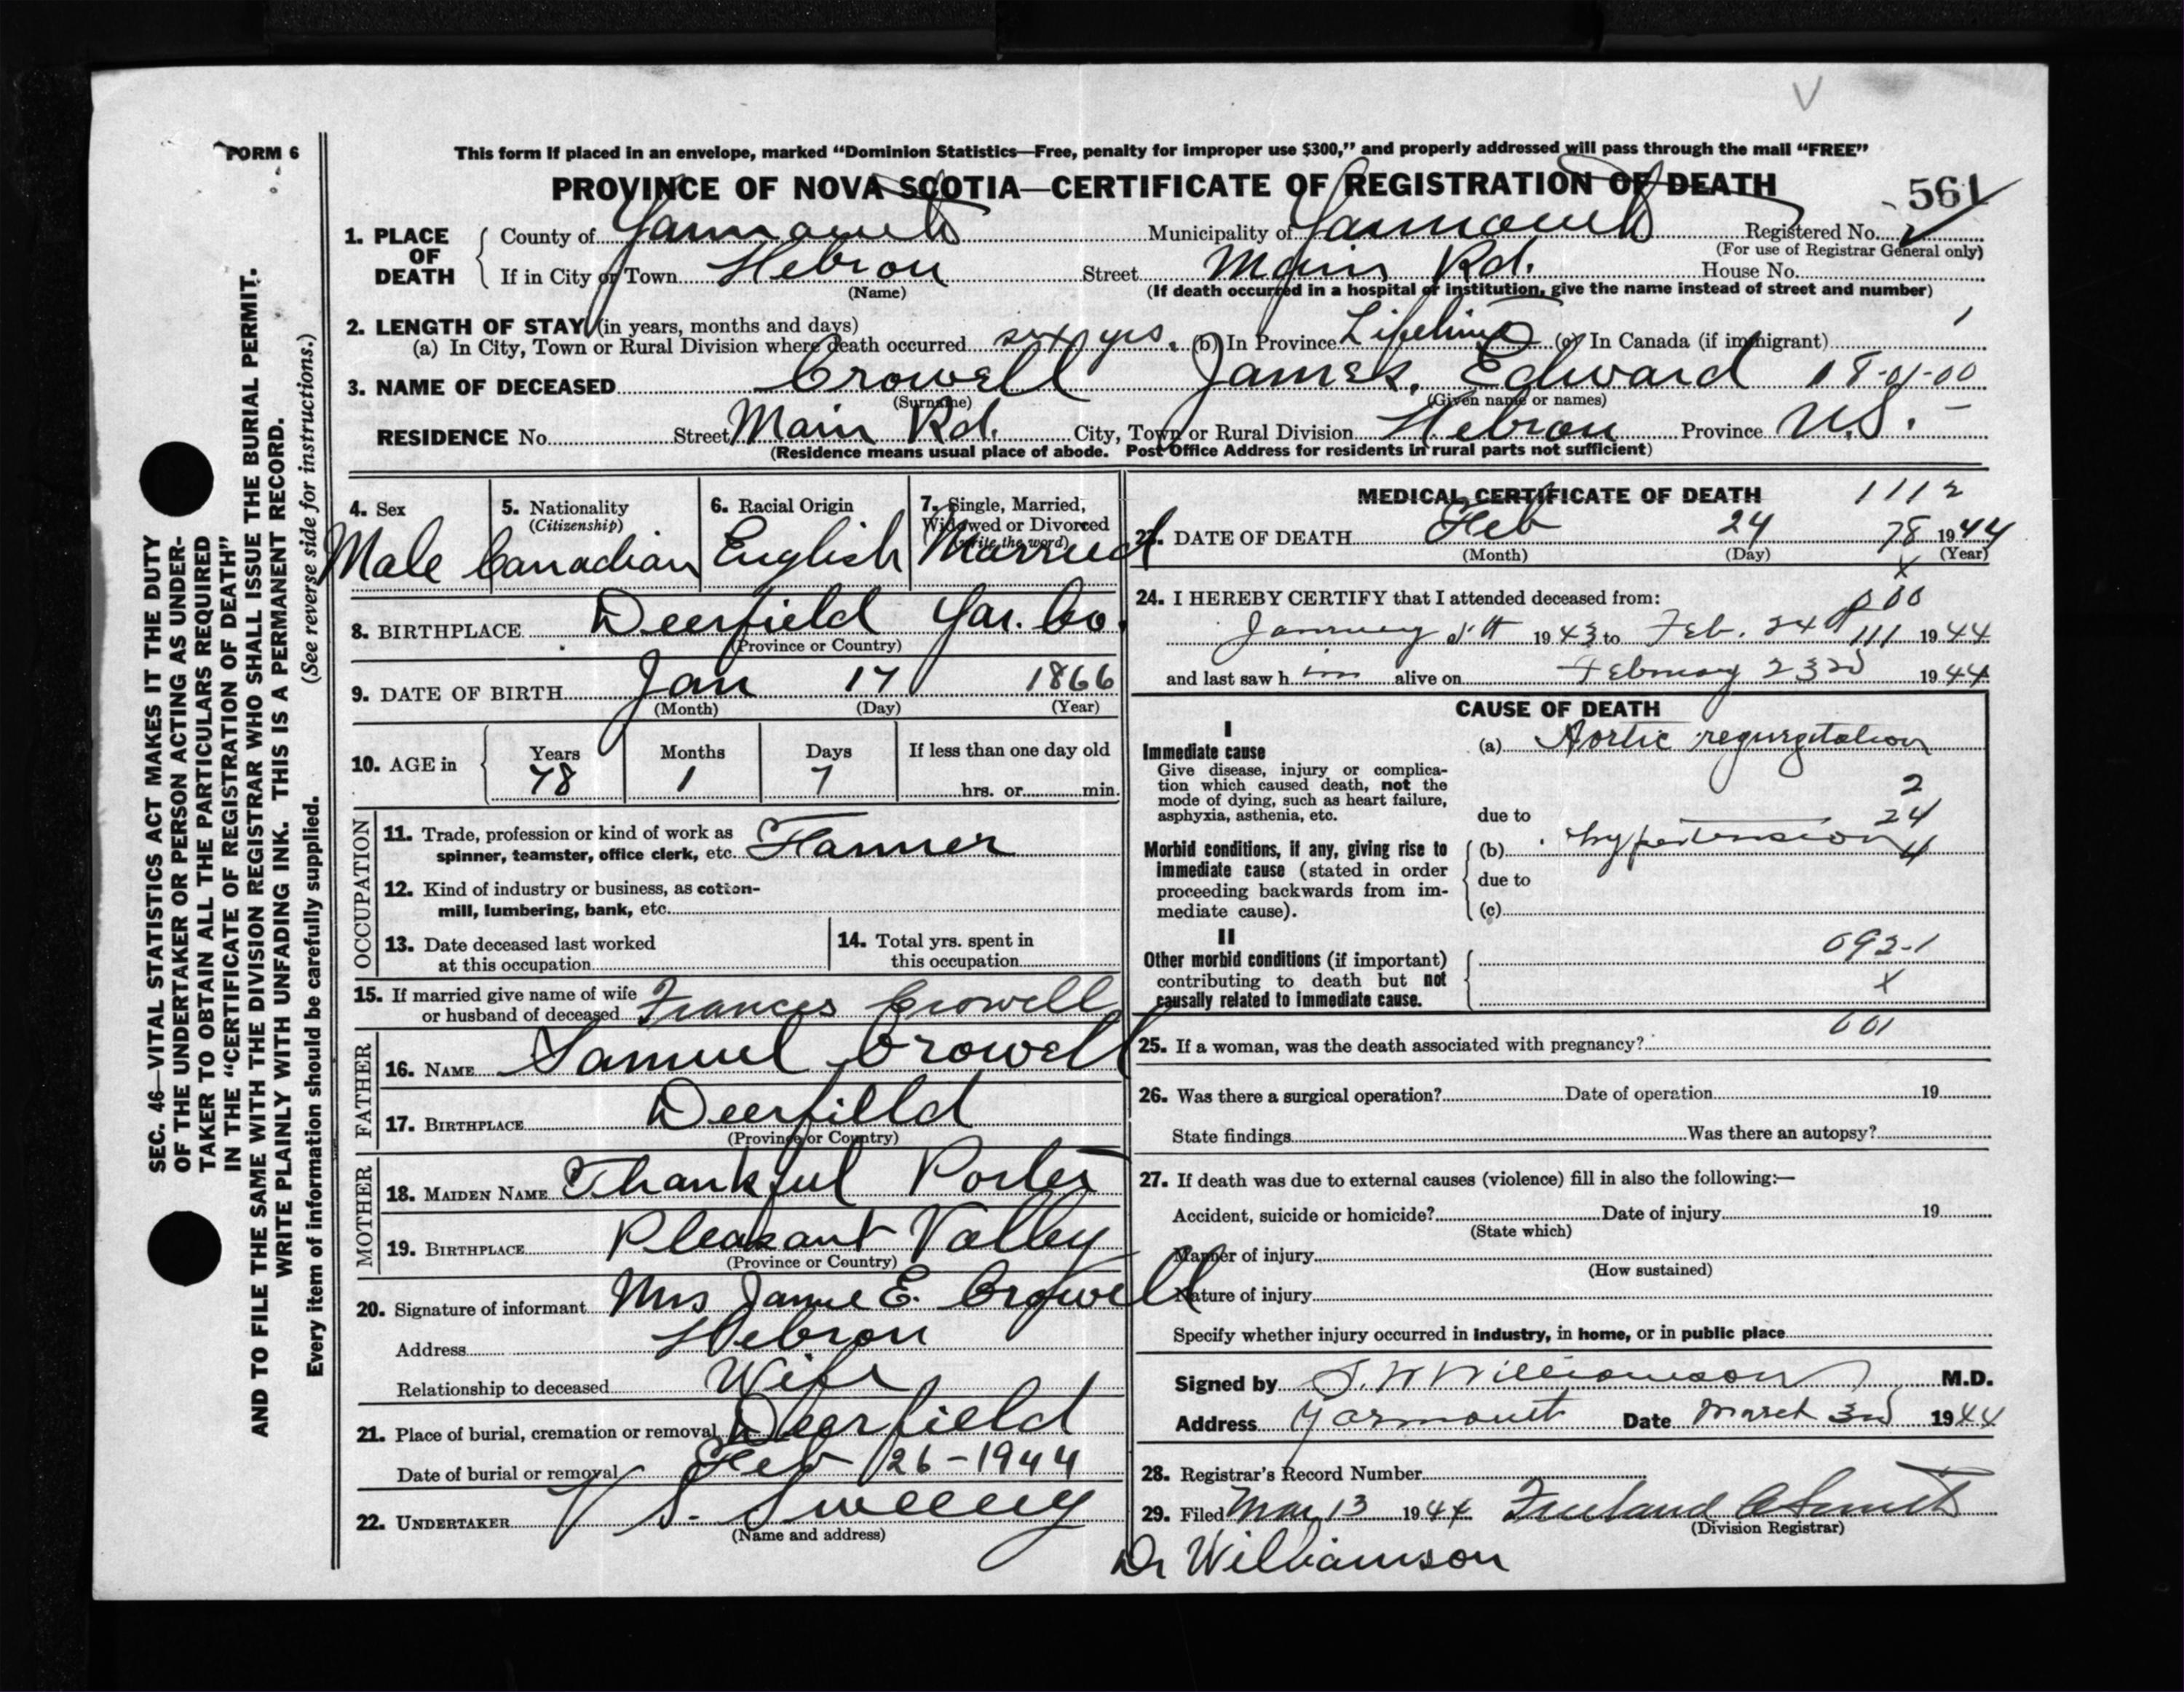 FORM 6
This form if placed in an envelope, marked “Dominion Statistics—Free, penalty for improper use $300,” and properly addressed will pass through the mail “FREE”
PROVINCE OF NOVA SCOTIA—CERTIFICATE OF REGISTRATION OF DEATH
561
1. PLACE OF DEATH
County of Yarmouth Municipality of Yarmouth Registered No.
(For use of Registrar General only)
If in City or Town Hebron Street Main Rd. House No.
(Name) (If death occurred in a hospital or institution, give the name instead of street and number)
2. LENGTH OF STAY (in years, months and days) 1
(a) In City, Town or Rural Division where death occurred six yrs. (b) In Province Lifetime (c) In Canada (if immigrant)
3. NAME OF DECEASED Crowell James. Edward
(Surname) (Given name or names)
RESIDENCE No. Street Main Rd. City, Town or Rural Division Hebron Province N.S. -
(Residence means usual place of abode. Post Office Address for residents in rural parts not sufficient)
4. Sex Male
5. Nationality (Citizenship) Canadian
6. Racial Origin English
7. Single, Married, Widowed or Divorced (write the word) Married
8. BIRTHPLACE Deerfield Yar. Co.
(Province or Country)
9. DATE OF BIRTH Jan 17 1866
(Month) (Day) (Year)
10. AGE in Years Months Days If less than one day old
78 1 7 hrs. or min.
OCCUPATION
11. Trade, profession or kind of work as
spinner, teamster, office clerk, etc. Farmer
12. Kind of industry or business, as cotton-
mill, lumbering, bank, etc.
13. Date deceased last worked
at this occupation
14. Total yrs. spent in
this occupation
15. If married give name of wife
or husband of deceased Frances Crowell
FATHER
16. NAME Samuel Crowell
17. BIRTHPLACE Deerfield
(Province or Country)
MOTHER
18. MAIDEN NAME Thankful Porter
19. BIRTHPLACE Pleasant Valley
(Province or Country)
20. Signature of informant Mrs James E. Crowell
Address Hebron
Relationship to deceased Wife
21. Place of burial, cremation or removal Deerfield
Date of burial or removal Feb 26-1944
22. UNDERTAKER V S. Sweeney
(Name and address)
MEDICAL CERTIFICATE OF DEATH 1112
23. DATE OF DEATH Feb 24 78 1944
(Month) (Day) (Year)
x
24. I HEREBY CERTIFY that I attended deceased from: 000
January 1943 to Feb. 24 111 1944
and last saw him alive on February 23rd 1944
CAUSE OF DEATH
I
Immediate cause
Give disease, injury or complica-
tion which caused death, not the
mode of dying, such as heart failure,
asphyxia, asthenia, etc.
(a) Aortic regurgitation
2
due to 24
Morbid conditions, if any, giving rise to
immediate cause (stated in order
proceeding backwards from im-
mediate cause).
(b) hypertension 4
due to
(c)
II
Other morbid conditions (if important)
contributing to death but not
causally related to immediate cause.
092-1
x
001
25. If a woman, was the death associated with pregnancy?
26. Was there a surgical operation? Date of operation 19
State findings Was there an autopsy?
27. If death was due to external causes (violence) fill in also the following:—
Accident, suicide or homicide? Date of injury 19
(State which)
Manner of injury
(How sustained)
Nature of injury
Specify whether injury occurred in industry, in home, or in public place
Signed by Williamson M.D.
Address Yarmouth Date March 3rd 1944
28. Registrar's Record Number
29. Filed Mar 13 1944
(Division Registrar)
Dr Williamson
SEC. 46—VITAL STATISTICS ACT MAKES IT THE DUTY
OF THE UNDERTAKER OR PERSON ACTING AS UNDER-
TAKER TO OBTAIN ALL THE PARTICULARS REQUIRED
IN THE “CERTIFICATE OF REGISTRATION OF DEATH”
AND TO FILE THE SAME WITH THE DIVISION REGISTRAR WHO SHALL ISSUE THE BURIAL PERMIT.
WRITE PLAINLY WITH UNFADING INK. THIS IS A PERMANENT RECORD.
Every item of information should be carefully supplied. (See reverse side for instructions.)